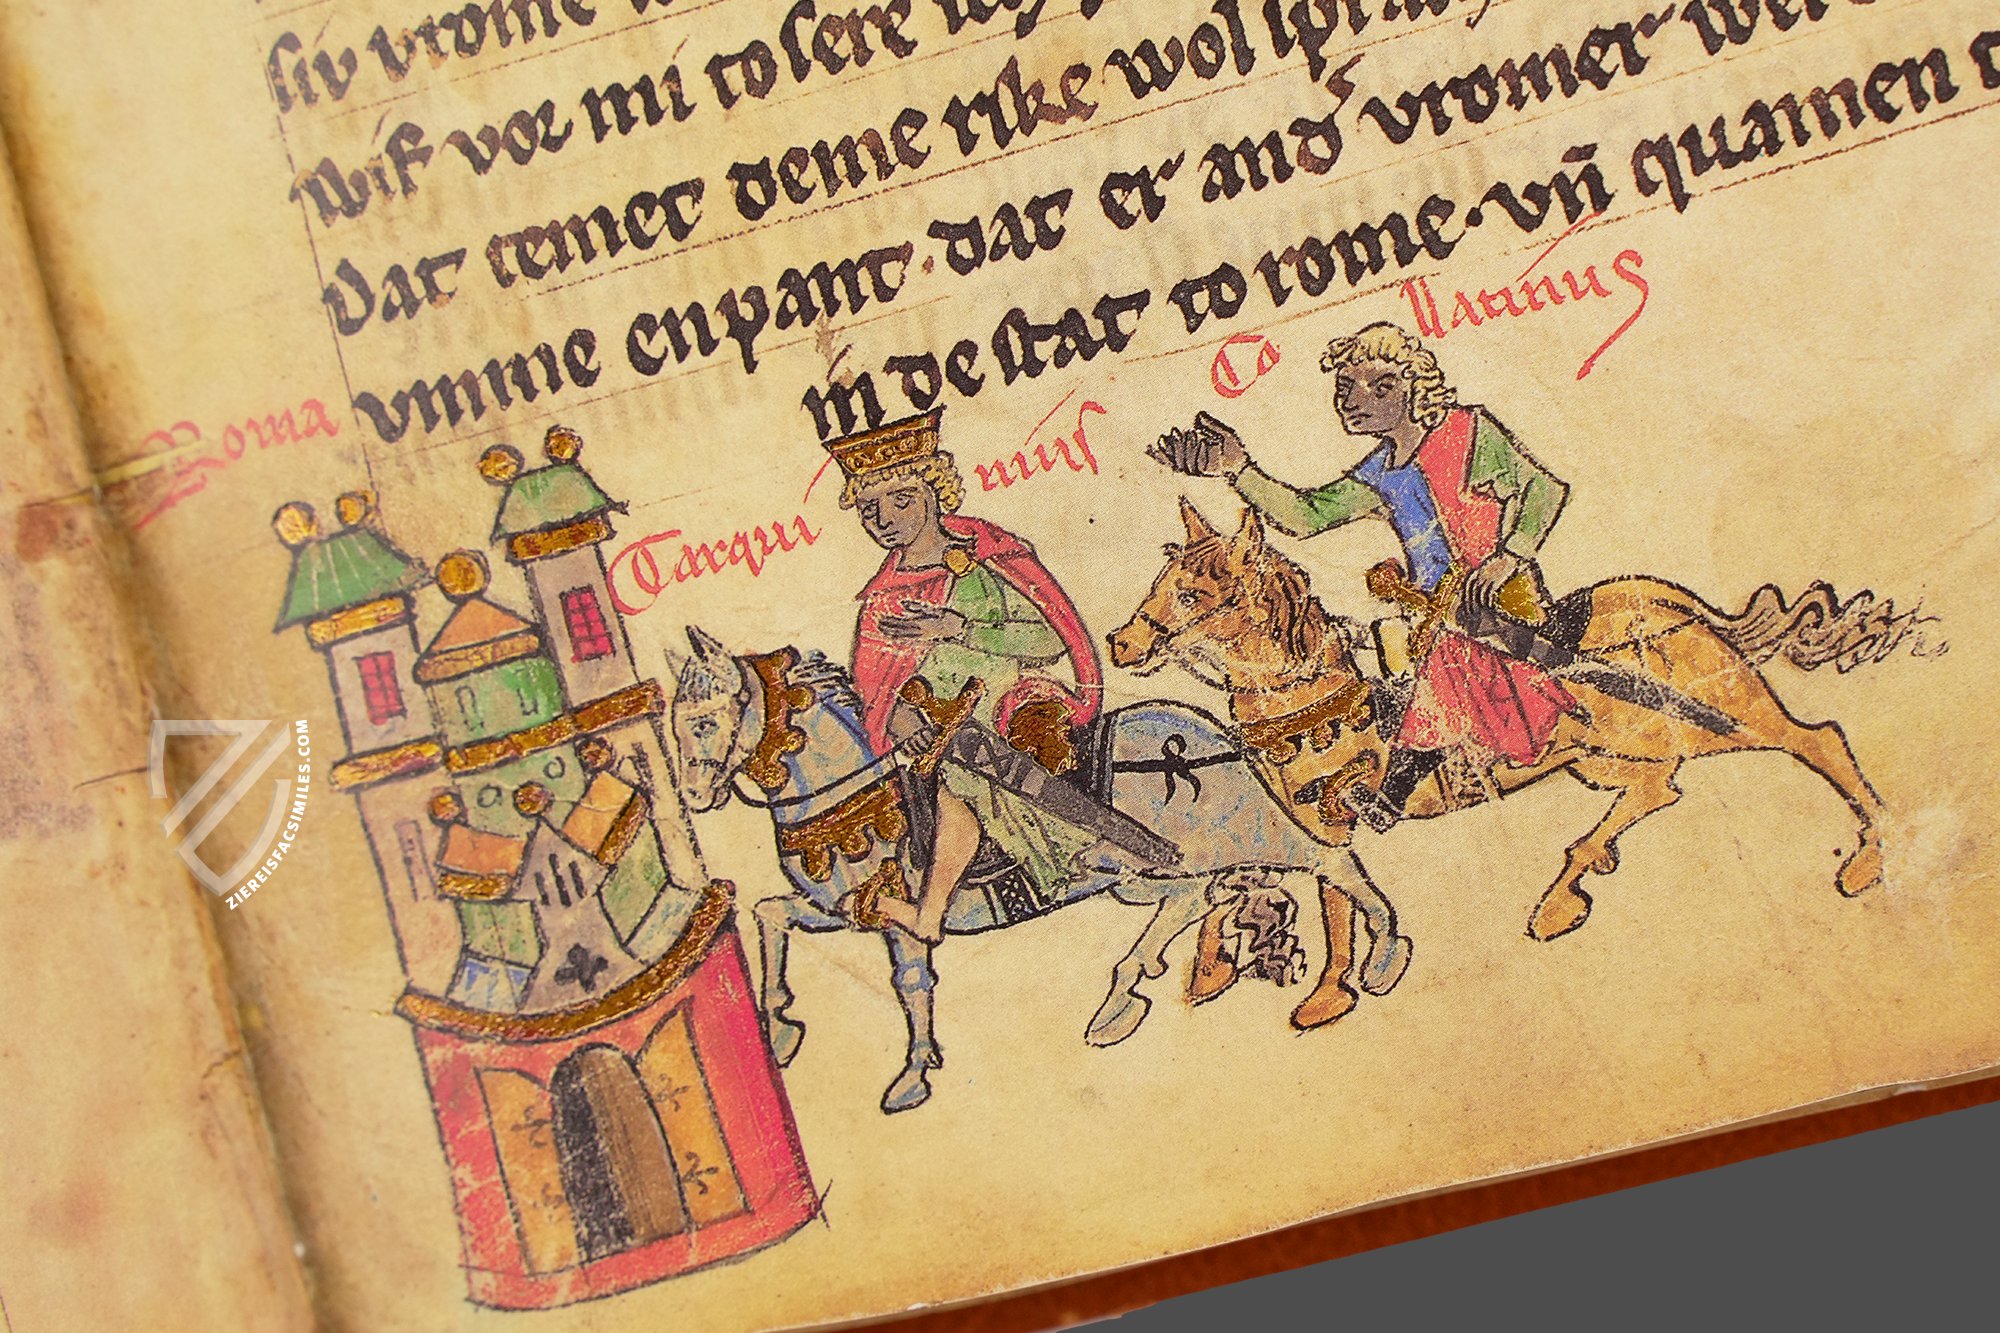 siv vrome
wif vor mi to sere
dat temet deme rike wol
umme enpant · dat er and vromer
in de stat to rome · vn̄ quamen
Roma
Tarqui nius
Co llatinus
ZIEREISFACSIMILES.COM